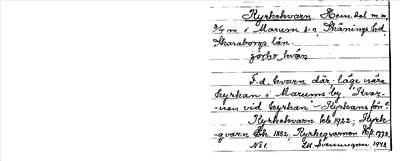 Kyrkekvarn, Hem. Dal m. m.
3/4 m. i Marum sn, Skånings hd,
Skaraborgs län.
F. d. kvarn där. Låge nära
kyrkan i Marums by "Kvar-
nen vid kyrkan" - Kyrkans
Kyrkekvarn hb 1922, Kyrk-
qvarn Ek. 1882, Kyrkeqvarnen 1778
No 1. 1948